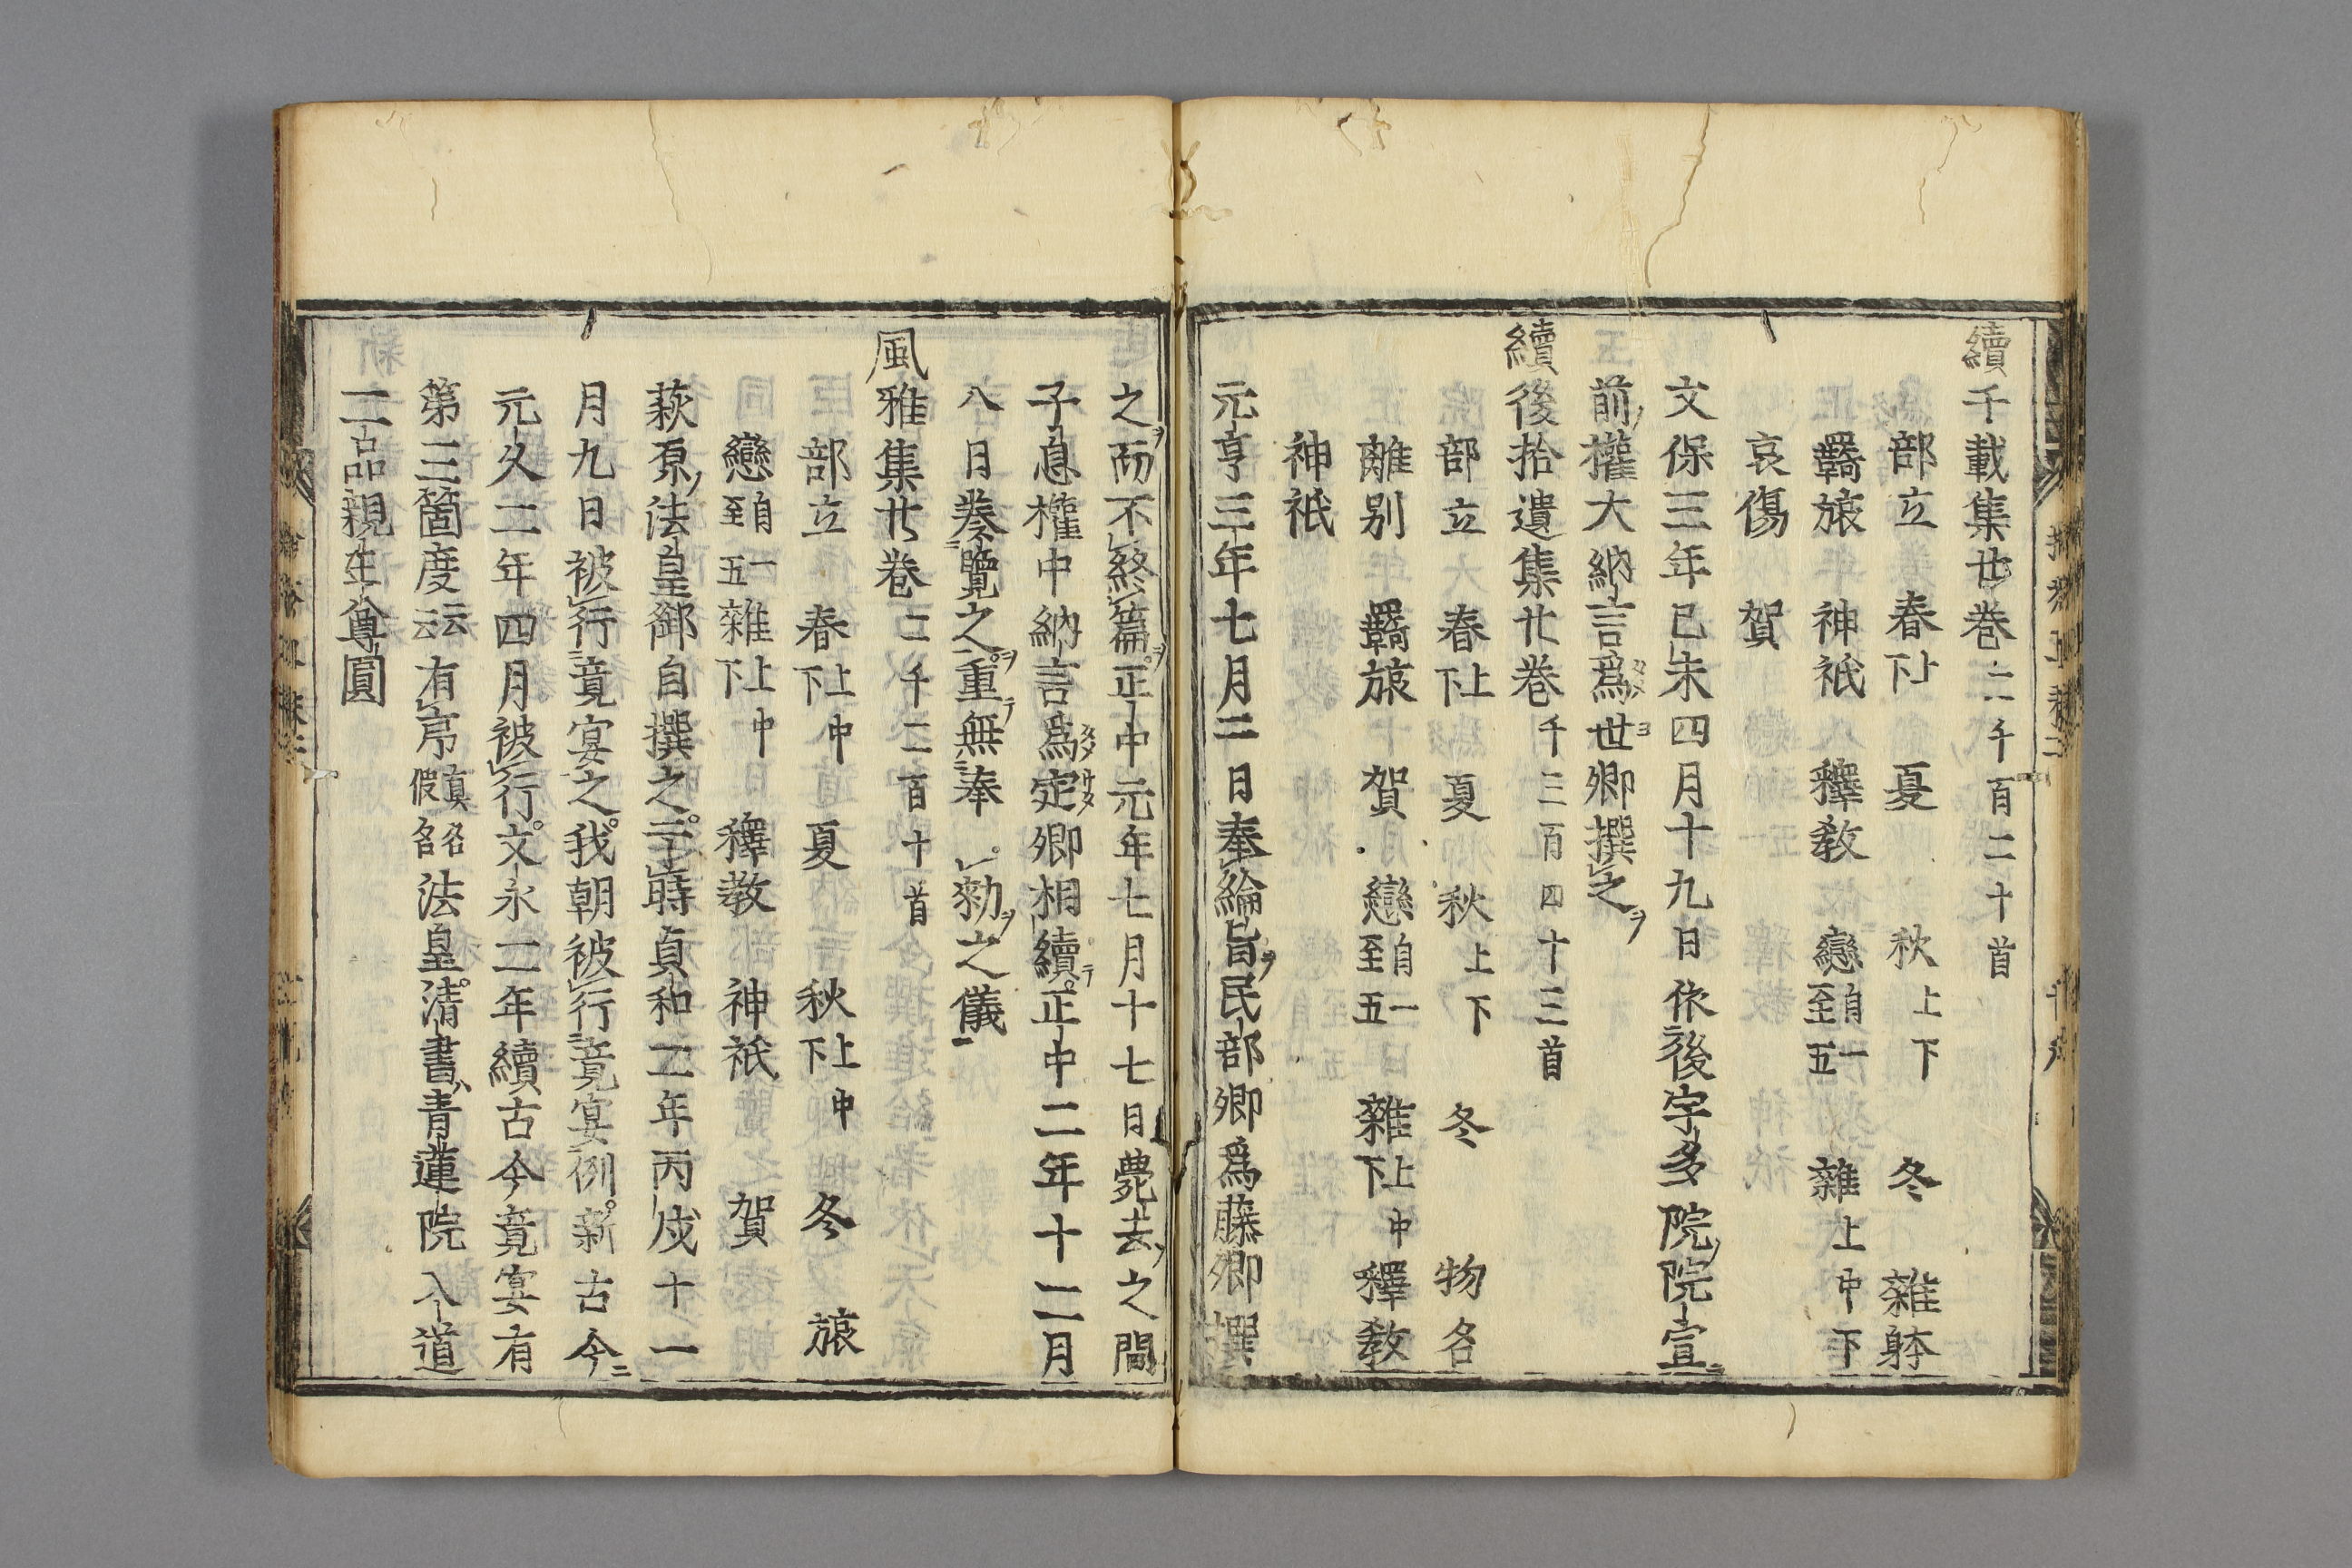 續千載集廿巻二千百二十首
部立 春上下 夏 秋上下 冬 雜躰
羇旅 神祇 釋教 戀自一至五 雜上中下
哀傷 賀
文保三年已未四月十九日依後宇多院院宣
前權大納言為世卿撰之
續後拾遺集廿巻千三百四十三首
部立 春上下 夏 秋上下 冬 物名
離别 羇旅 賀 戀自一至五 雜上中下 釋教
神祇
元亨三年七月二日奉綸旨民部卿為藤卿撰
之而不終篇正中元年七月十七日薨去之間
子息權中納言為定卿相續正中二年十二月
八日奏覽之重無奉勅之儀
風雅集廿巻二千二百十首
部立 春上中下 夏 秋上中下 冬 旅
戀自一至五 雜上中下 釋教 神祇 賀
萩原法皇御自撰之于時貞和二年丙戌十一
月九日被行竟宴之我朝被行竟宴例新古今
元久二年四月被行文永二年續古今竟宴有
第三箇度云云有序真名假名法皇清書青蓮院入道
二品親王尊圓